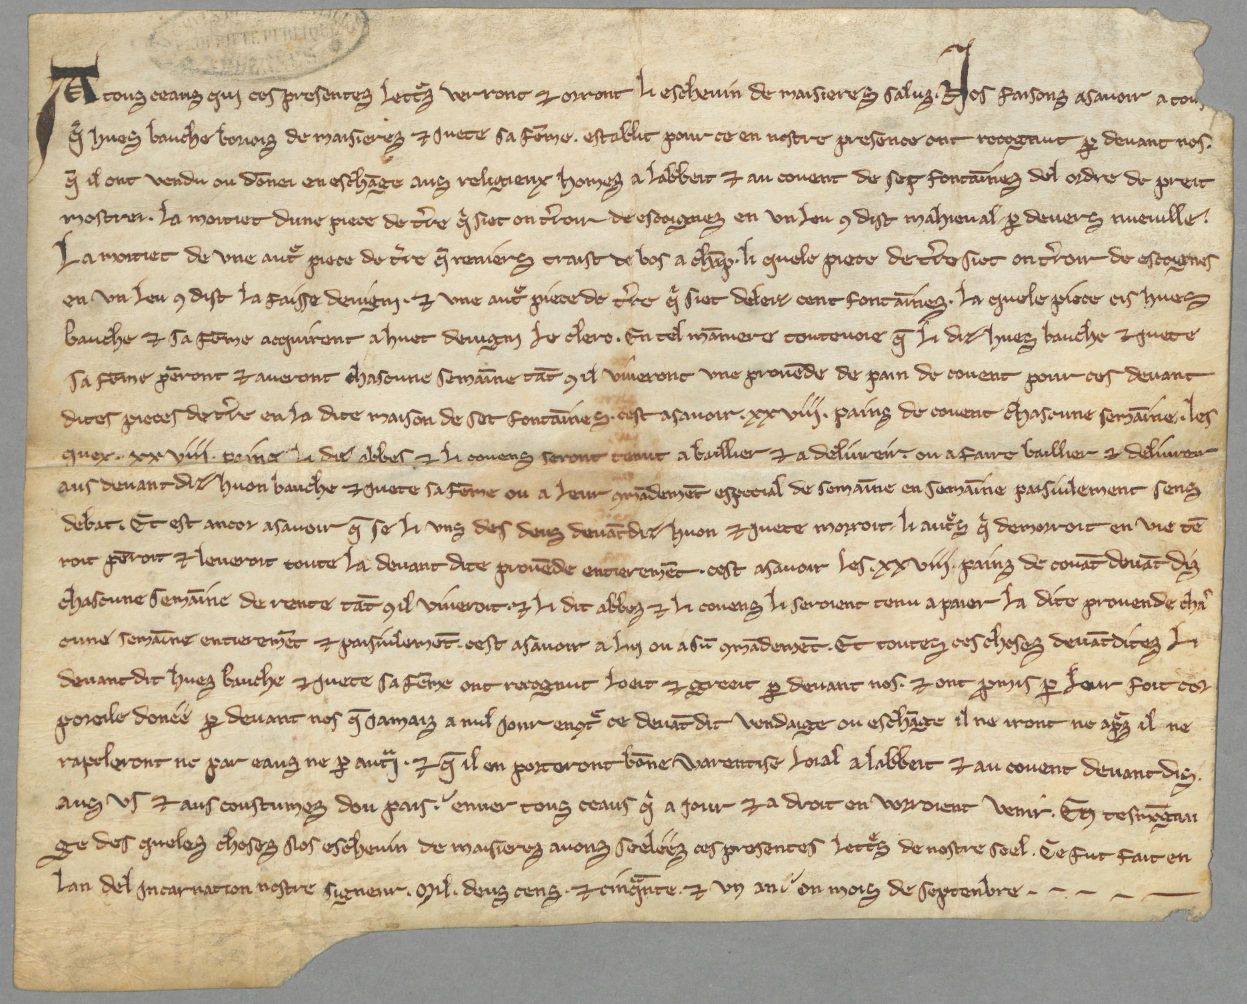 PROPRIETE PUBLIQUE
A tous ceaus qui ces presentes lettres verront et orront li eschevin de maisieres saluz. Nos faisons asavoir a tous
q̄ hues bauche borjois de maisieres et Juete sa fēme. establit pour ce en nostre presence ont recognut p̱ devant nos.
q̄ il ont vendu ou dōnei en eschāge aus religieux homes a labbeit et au covent de set fontāines del ordre de preit
mostrei. la moitiet dune piece de t̄re q̄ siet on t̄roir de escoignes en un leu ꝯ dist mahieual p̱ devers nueville.
La moitiet de une aut̄ piece de t̄re q̄ reniers traist de bos a chāp. li quele piece de t̄re siet on t̄roir de escoignes
en un leu ꝯ dist la faisse devigni. et une aut̄ piece de t̄re q̄ siet deleis cent fontāines. la quele piece cis hues
bauche et sa fēme acquirent a huet devigni le clerc. En tel māniere toutevoie q̄ li dis hues bauche et Juete
sa fēme pēront et averont chascune semāine tāt ꝯ il viveront une provēde de pain de covent pour ces devant
dites pieces de t̄re en la dite maison de set fontāines. cest asavoir. xxviii. pains de covent chascune semāine. les
quex. xxviii. pains li dis abbes et li covens seront tenut a baillier et a delivreir. ou a faire baillier et delivreir
aus devant dis huon bauche et Juete sa fēme ou a leur ꝯmādemēt especial de semāine en semāine paisiulement sens
debat. Et est ancor asavoir q̄ se li uns des deus devātdis huon et Juete morroit. li aut̄s q̄ demorroit en vie tē
roit pēroit et leveroit toute la devant dite provēde entieremēt. cest asavoir les. xxviii. pains de covāt devāt dis
chascune semāine de rente tāt ꝯ il viveroit. et li dit abbes et li covens li seroient tenu a paier la dite provende chas
cune semāine entieremēt et paisiulemēt. cest asavoir a lui ou a sū ꝯmādemēt. Et toutes ces choses devātdites li
devant dit hues bauche et Juete sa fēme ont recognut loeit et greeit p̱ devant nos. et ont pmis p̱ leur foit cor
poreile donēe p̱ devant nos q̄ jamais a nul jour encōt̄ ce devāt dit vendaige ou eschāge il ne iront ne ap̄s il ne
rapeleront ne par eaus ne p̱ aut̄i. et q̄ il en porteront bōne warentise loial a labbeit et au covent devant dis.
aus us et aus coustumes dou pais. enver tous ceaus q̄ a jour et a droit en vorroient venir. En tesmōgnai
ge des queles choses Nos eschevin de maisieres avons seelēes ces presentes lett̄s de nostre seel. Ce fut fait en
lan del Incarnation nostre signeur. Mil. deus cens. et cinq̄nte. et un an. on mois de septenbre